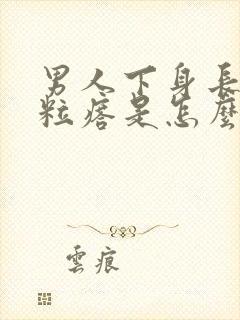 男人下身長
粒痞是怎麼
雲痕